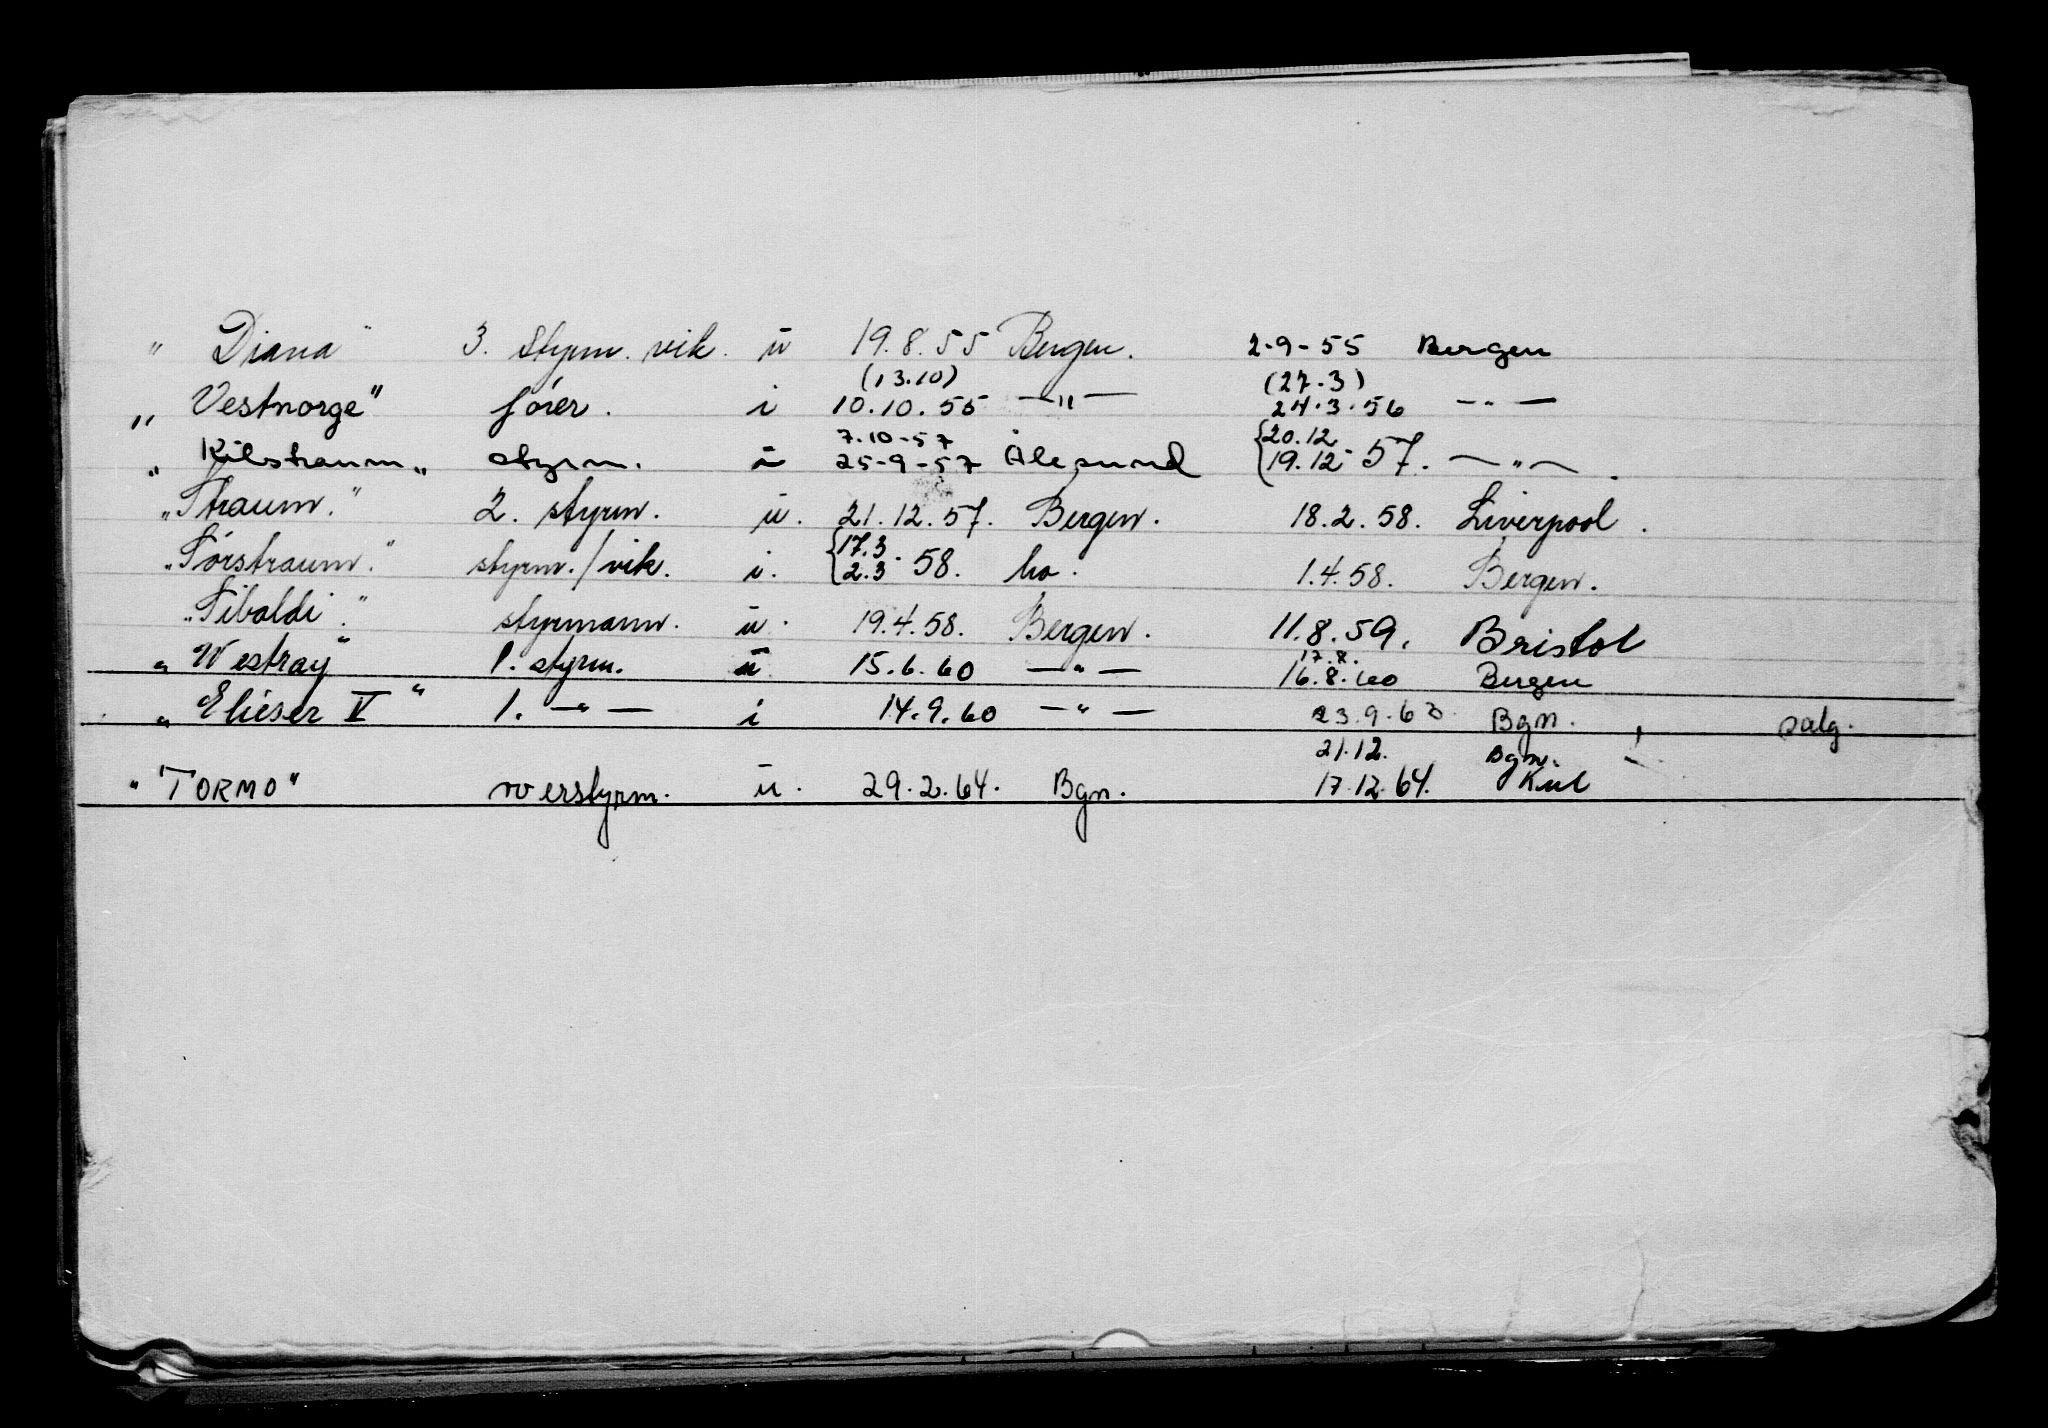 " Diana " 3. styrm. vik. u 19.8.55 Bergen. 2-9-55 Bergen
(13.10) (27.3)
„ Vestnorge" fører. i 10.10.55 —"— 24.3.56 —"—
7.10-57 {20.12
„ Kilstraum „ styrm. u 25-9-57 Ålesund 19.12 57. —"—.
„Straum." 2. styrm. u. 21.12.57. Bergen. 18.2.58. Liverpool.
{17.3
„Sørstraum." styrm./vik. i. 2.3 58. ho. 1.4.58. Bergen.
„Sibaldi." styrmann. u. 19.4.58. Bergen. 11.8.59. Bristol
17.8.
„ Westray" 1. styrm. u. 15.6.60 —"— 16.8.60 Bergen
„ Elieser V " 1. —"— i 14.9.60 —"— 23.9.63 Bgn. , salg.
21.12. Bgn. -
" TORMO" overstyrm. u. 29.2.64. Bgn. 17.12.64.